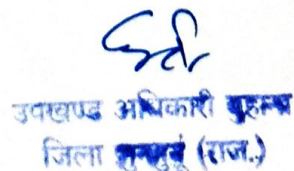 उपखण्ड अधिकारी
जिला झुन्झुनूं (राज.)